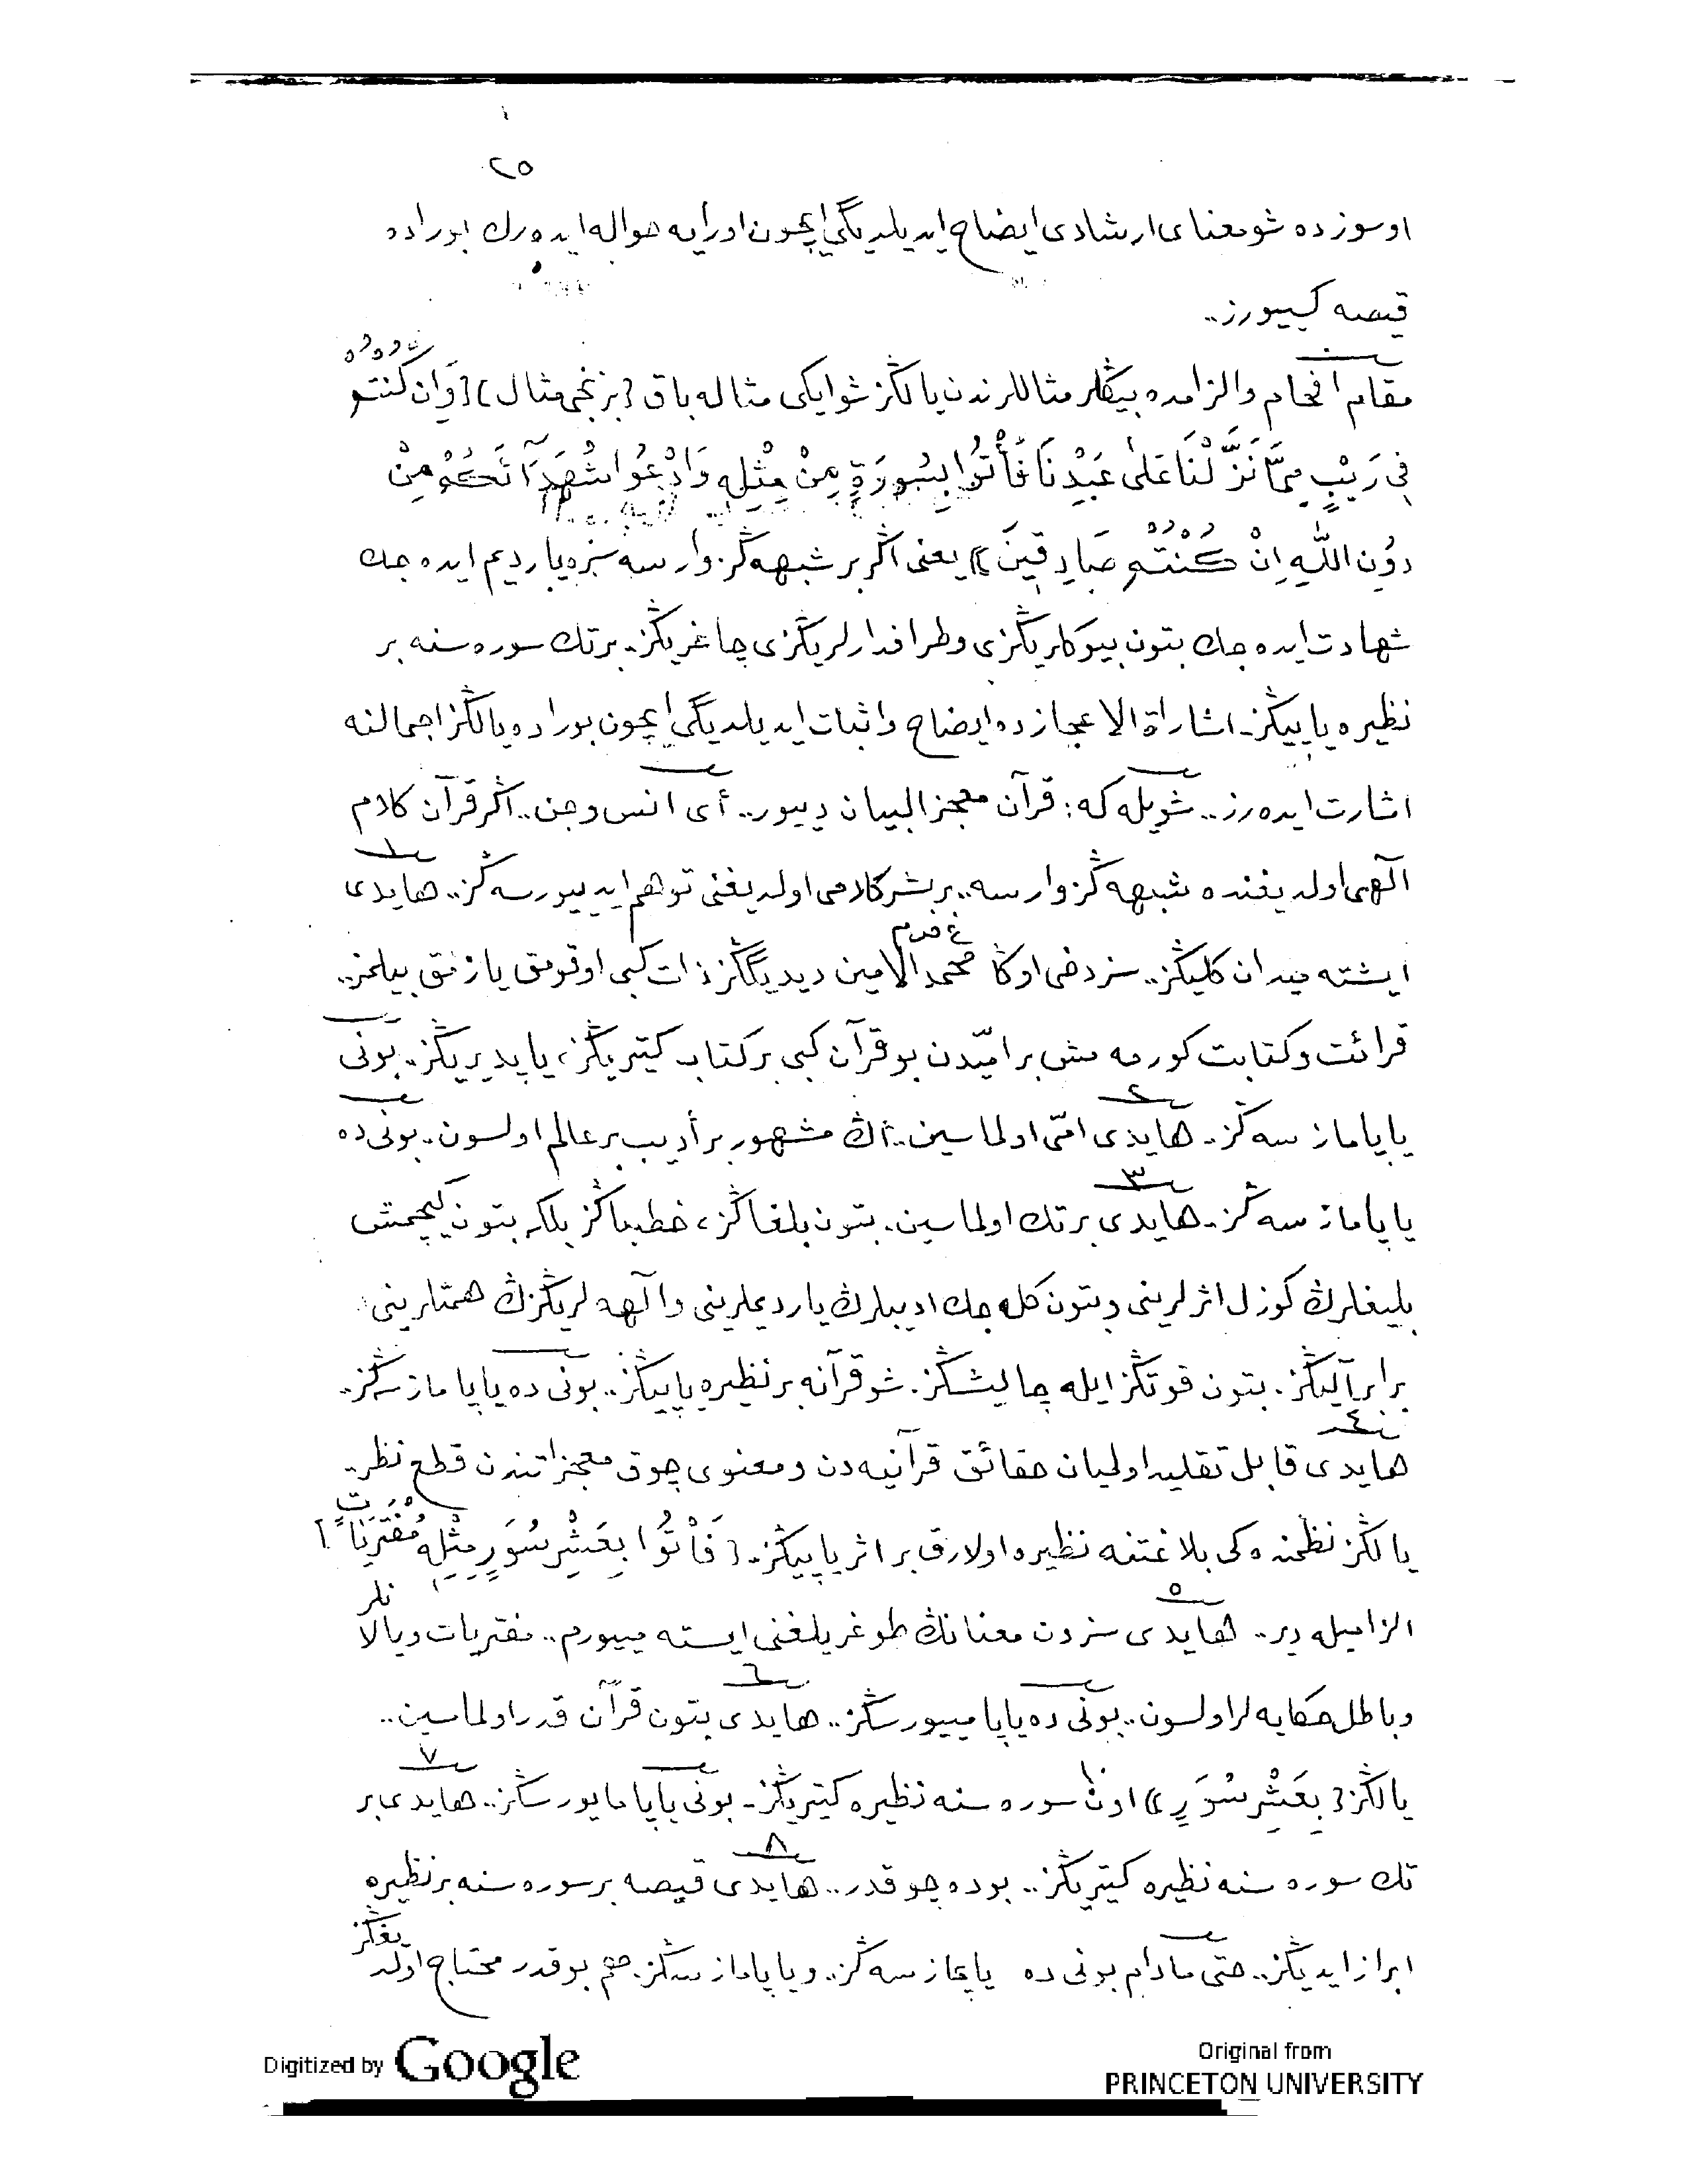 ٢٥
او سوزده شو معنای ارشادی ایضاح ایدیلدیگی ایچون اورایه حواله ایده‌رك بوراده
قیصه كسییورز..
مقام افحام والزامده بیڭلر مثاللرندن یالڭز شو ایكی مثاله باق ﴿برنجی مثال﴾ ﴿وَاِنْ كُنْتُمْ
فِى رَيْبٍ مِمَّا نَزَّلْنَا عَلٰى عَبْدِنَا فَأْتُوا بِسُورَةٍ مِنْ مِثْلِهِ وَادْعُوا شُهَدَآئَكُمْ مِنْ
دُونِ اللّٰهِ اِنْ كُنْتُمْ صَادِقِينَ﴾ یعنی اڭر بر شبهه‌ڭز وارسه سزه یاردیم ایده‌جك
شهادت ایده‌جك بتون بیوكلریڭزی وطرافدارلریڭزی چاغریڭز. برتك سوره‌سنه بر
نظیره یاپیڭز. اشاراة الاعجازده ایضاح واثبات ایدیلدیگی ایچون بوراده یالڭز اجمالنه
اشارت ایده‌رز.. شویله‌كه: قرآن معجزالبیان دییور.. أی انس وجن.. اڭر قرآن كلام
آلهی اولدیغنده شبهه‌ڭز وارسه.. بر بشر كلامی اولدیغنی توهم ایدییورسه‌ڭز.. هایدی
١
ایشته میدان كلیڭز.. سز دخی اوڭا محمد الامین دیدیگڭز ذات كبی اوقومق یازمق بیلمز..
ع‌م
قرائت وكتابت كورمه‌مش بر امّیدن بو قرآن كبی بر كتاب كتیریڭز، یاپدیریڭز.. بونی
یاپامازسه‌ڭز. هایدی امّی اولماسین.. اڭ مشهور بر أدیب بر عالم اولسون.. بونی‌ده
٢
یاپامازسه‌ڭز. هایدی برتك اولماسین. بتون بلغاڭز، خطباڭز بلكه بتون گیچمش
٣
بلیغلرڭ كوزل اثرلرینی وبتون كله‌جك ادیبلرڭ یاردیملرینی وآلهه‌لریڭزڭ همتلرینی
برابر آلیڭز. بتون قوتڭز ایله چالیشڭز. شو قرآنه بر نظیره یاپیڭز.. بونی‌ده یاپامازسه‌ڭز.
هایدی قابل تقلید اولمیان حقائق قرآنیه‌دن ومعنوی چوق معجزاتندن قطع نظر.
٤
یالڭز نظمنده‌كی بلاغتنه نظیره اولارق بر اثر یاپیڭز. ﴿فَأْتُوا بِعَشْرِ سُوَرٍ مِثْلِهِ مُفْتَرَيَاتٍ﴾
الزامیله دیر.. هایدی سزدن معنانڭ طوغریلغنی ایسته‌مییورم.. مفتریات ویالانلر
٥
وباطل حكایه‌لر اولسون.. بونی‌ده یاپامییورسڭز.. هایدی بتون قرآن قدر اولماسین..
٦
یالڭز ﴿بِعَشْرِ سُوَرٍ﴾ اون سوره‌سنه نظیره كتیریڭز. بونی یاپامایورسڭز.. هایدی بر
٧
تك سوره‌سنه نظیره كتیریڭز.. بوده چوقدر.. هایدی قیصه بر سوره‌سنه بر نظیره
٨
ابراز ایدیڭز.. حتی مادام بونی‌ده یاپمازسه‌ڭز.. ویاپامازسه‌ڭز. هم بوقدر محتاج اولدیغڭز
Digitized by Google
Original from
PRINCETON UNIVERSITY